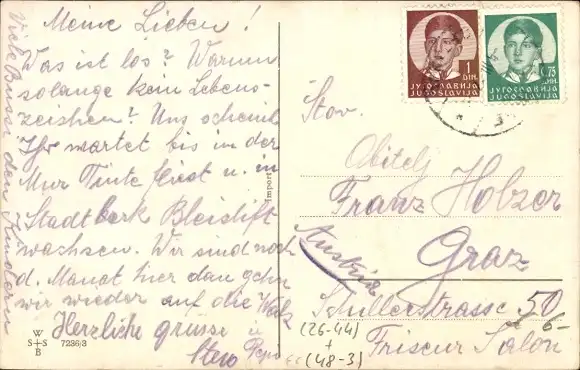 Meine Lieben!
Was ist los? Warum
solange kein Lebens-
zeichen? Uns scheint
Ihr wartet bis in der
Mur Tinte fliest u. in
Stadtberk Bleistift
wachsen. Wir sind noch
d. Monat hier dan gehn
wir wieder auf die Walz
Herzliche grüsse
Viele Bussi den Kindern
1
DIN.
ЈУГОСЛАВИЈА
JUGOSLAVIJA
0.75
DIN.
ЈУГОСЛАВИЈА
JUGOSLAVIJA
Štov.
Obitelj
Franz Holzer
Graz
Austria
Schillerstrasse 50
Friseur Salon
6-
(26-44)
+
(48-3)
Import
W
S+S
B
7236/3